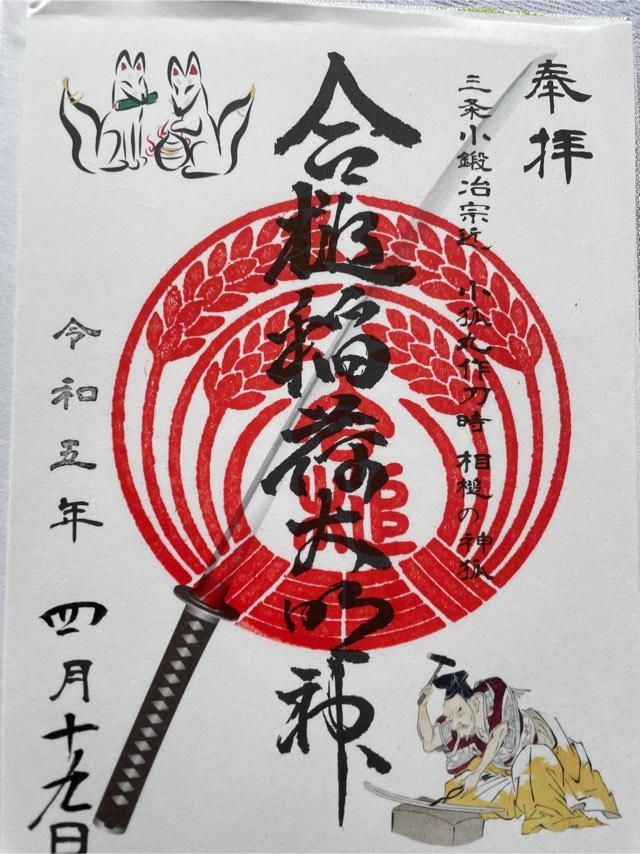 奉拝
三条小鍛冶宗近 小狐丸作刀時 相槌の神狐
合槌稲荷大明神
槌
令和五年 四月十九日